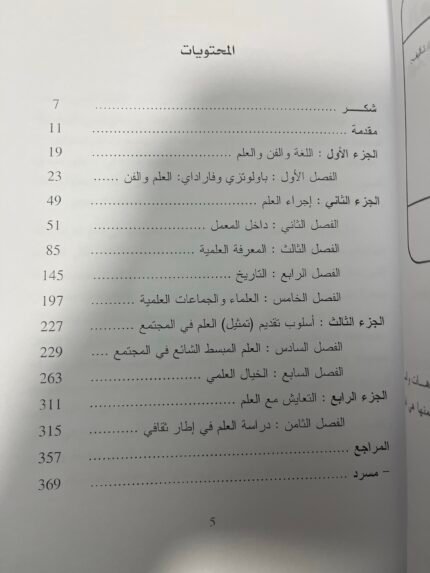 المحتويات
شكــر ............ 7
مقدمة ............ 11
الجزء الأول : اللغة والفن والعلم ............ 19
الفصل الأول : باولوتزي وفاراداي: العلم والفن ...... 23
الجزء الثاني : إجراء العلم ............ 49
الفصل الثاني : داخل المعمل ............ 51
الفصل الثالث : المعرفة العلمية ............ 85
الفصل الرابع : التاريخ ............ 145
الفصل الخامس : العلماء والجماعات العلمية ............ 197
الجزء الثالث : أسلوب تقديم (تمثيل) العلم في المجتمع ............ 227
الفصل السادس : العلم المبسط الشائع في المجتمع .... 229
الفصل السابع : الخيال العلمي ............ 263
الجزء الرابع : التعايش مع العلم ............ 311
الفصل الثامن : دراسة العلم في إطار ثقافي ............ 315
المراجع ............ 357
- مسرد ............ 369
5